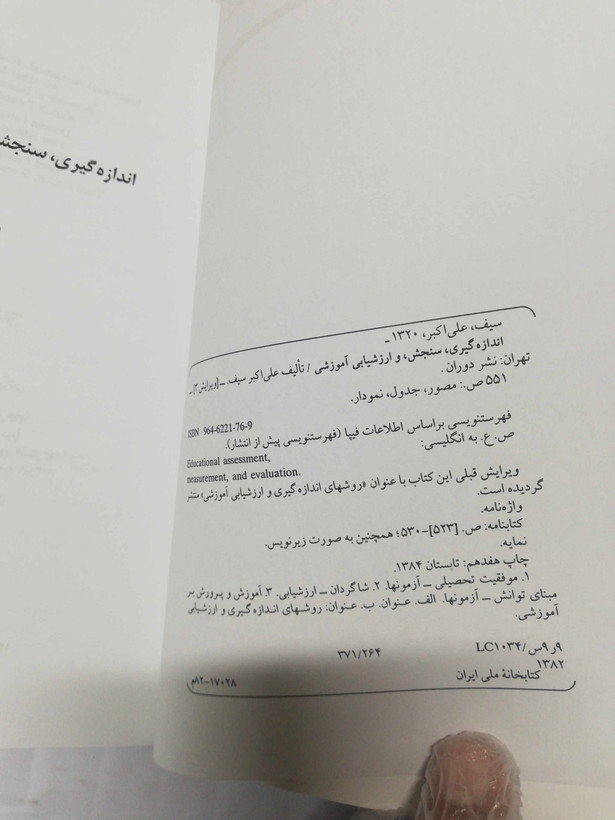 اندازه‌گیری، سنجش
سیف، علی‌اکبر، ۱۳۲۰ ـ
اندازه‌گیری، سنجش، و ارزشیابی آموزشی / تألیف علی‌اکبر سیف. ـ [ویرایش ۳]. ـ
تهران: نشر دوران.
۵۵۱ ص.: مصور، جدول، نمودار.
ISBN 964-6221-76-9
فهرستنویسی براساس اطلاعات فیپا (فهرستنویسی پیش از انتشار).
ص.ع. به انگلیسی:
Educational assessment,
measurement, and evaluation.
ویرایش قبلی این کتاب با عنوان «روشهای اندازه‌گیری و ارزشیابی آموزشی» منتشر
گردیده است.
واژه‌نامه.
کتابنامه: ص. [۵۲۳]-۵۳۰؛ همچنین به صورت زیرنویس.
نمایه.
چاپ هفدهم: تابستان ۱۳۸۴.
۱. موفقیت تحصیلی ـ آزمونها. ۲. شاگردان ـ ارزشیابی. ۳. آموزش و پرورش بر
مبنای توانش ـ آزمونها. الف. عنوان. ب. عنوان: روشهای اندازه‌گیری و ارزشیابی
آموزشی.
۹ر۹س/LC۱۰۳۴ ۳۷۱/۲۶۴
۱۳۸۲
کتابخانهٔ ملی ایران ۱۷۰۲۸-۹۲م